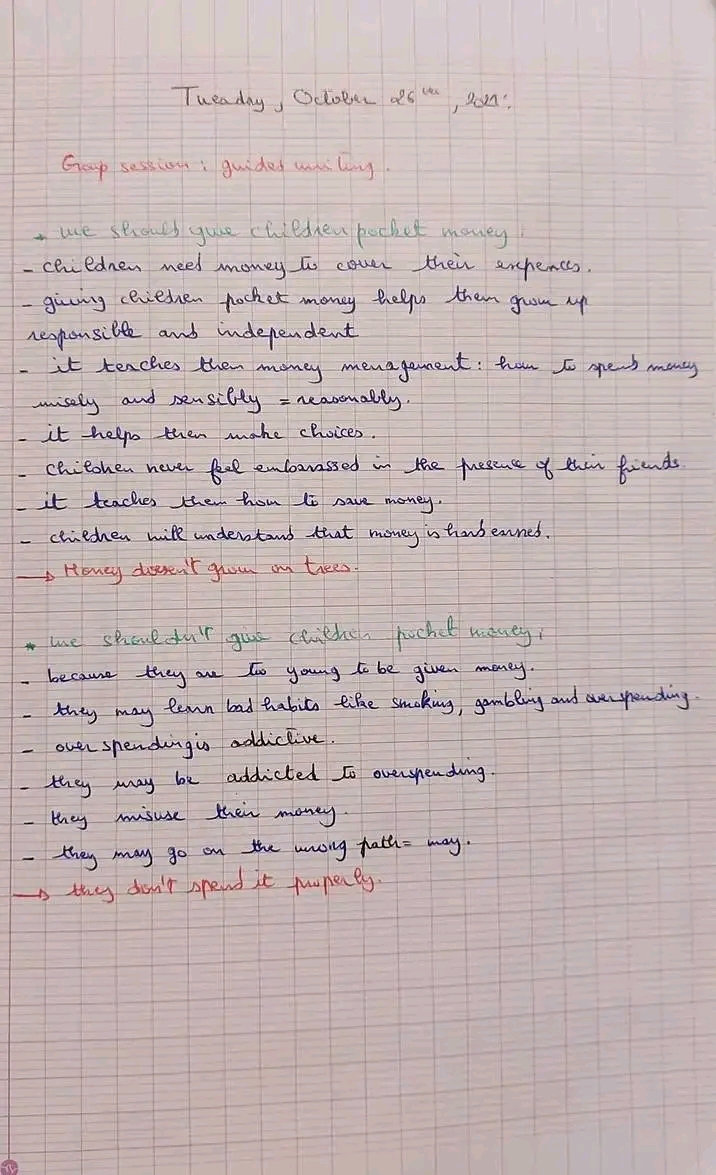 Tuesday, October 26th, 2021.
Group session : guided writing.
* we should give children pocket money :
- children need money to cover their expences.
- giving children pocket money helps them grow up
responsible and independent
- it teaches them money menagement : how to spend money
wisely and sensibly = reasonably.
- it helps them make choices.
- children never feel embarassed in the presence of their friends.
- it teaches them how to save money.
- children will understand that money is hard earned.
→ Money doesn't grow on trees.
* we shouldn't give children pocket money :
- because they are too young to be given money.
- they may learn bad habits like smoking, gambling and overspending.
- over spending is addictive.
- they may be addicted to overspending.
- they misuse their money.
- they may go on the wrong path = way.
→ they don't spend it properly.